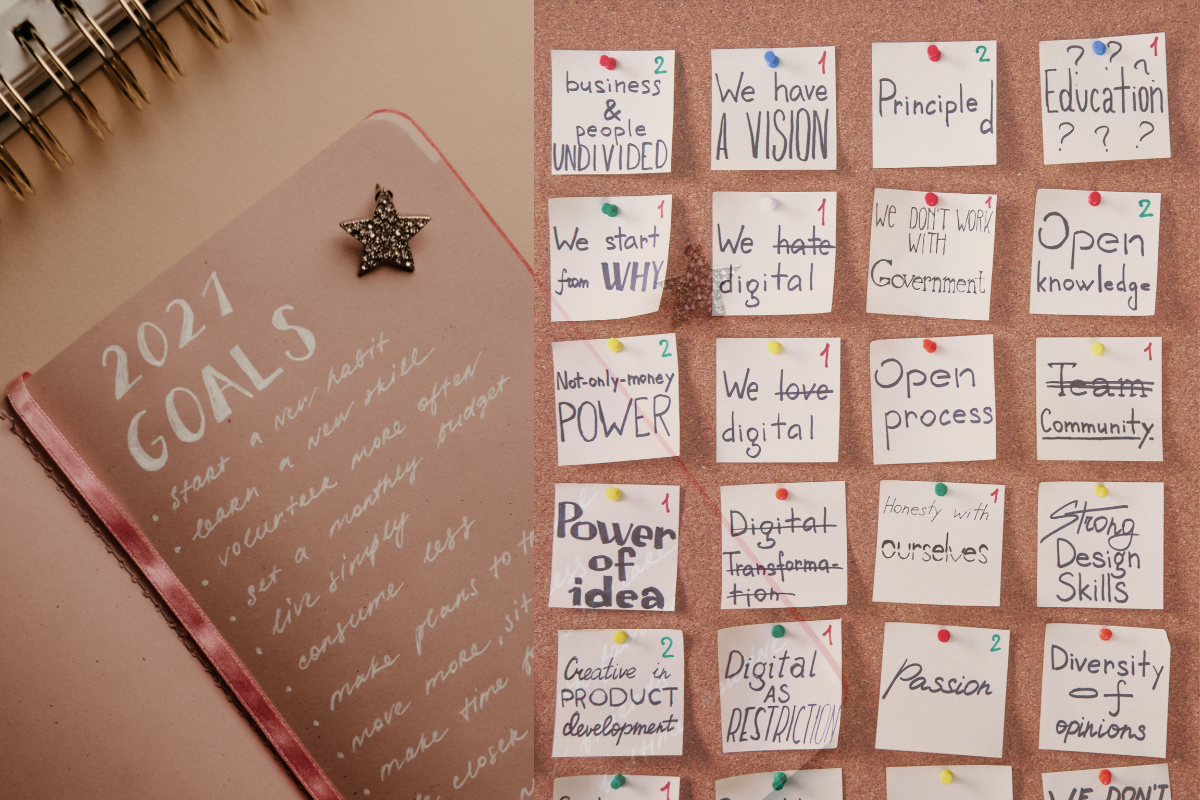 2021
GOALS
start a new habit
learn a new skill
volunteer more often
set a monthly budget
live simply
consume less
make plans to
move more, sit
make time
closer
2
business
&
people
UNDIVIDED
1
We have
A VISION
2
Principled
1
? ? ?
Education
? ? ?
1
We start
from WHY
1
We hate
digital
1
WE DON'T WORK
WITH
Government
2
Open
knowledge
2
Not-only-money
POWER
1
We love
digital
Open
process
1
Team
Community
1
Power
of
idea
Digital
Transforma-
tion
1
Honesty with
ourselves
Strong
Design
Skills
2
Creative in
PRODUCT
development
1
Digital
AS
RESTRICTION
2
Passion
Diversity
of
opinions
1
1
WE DON'T